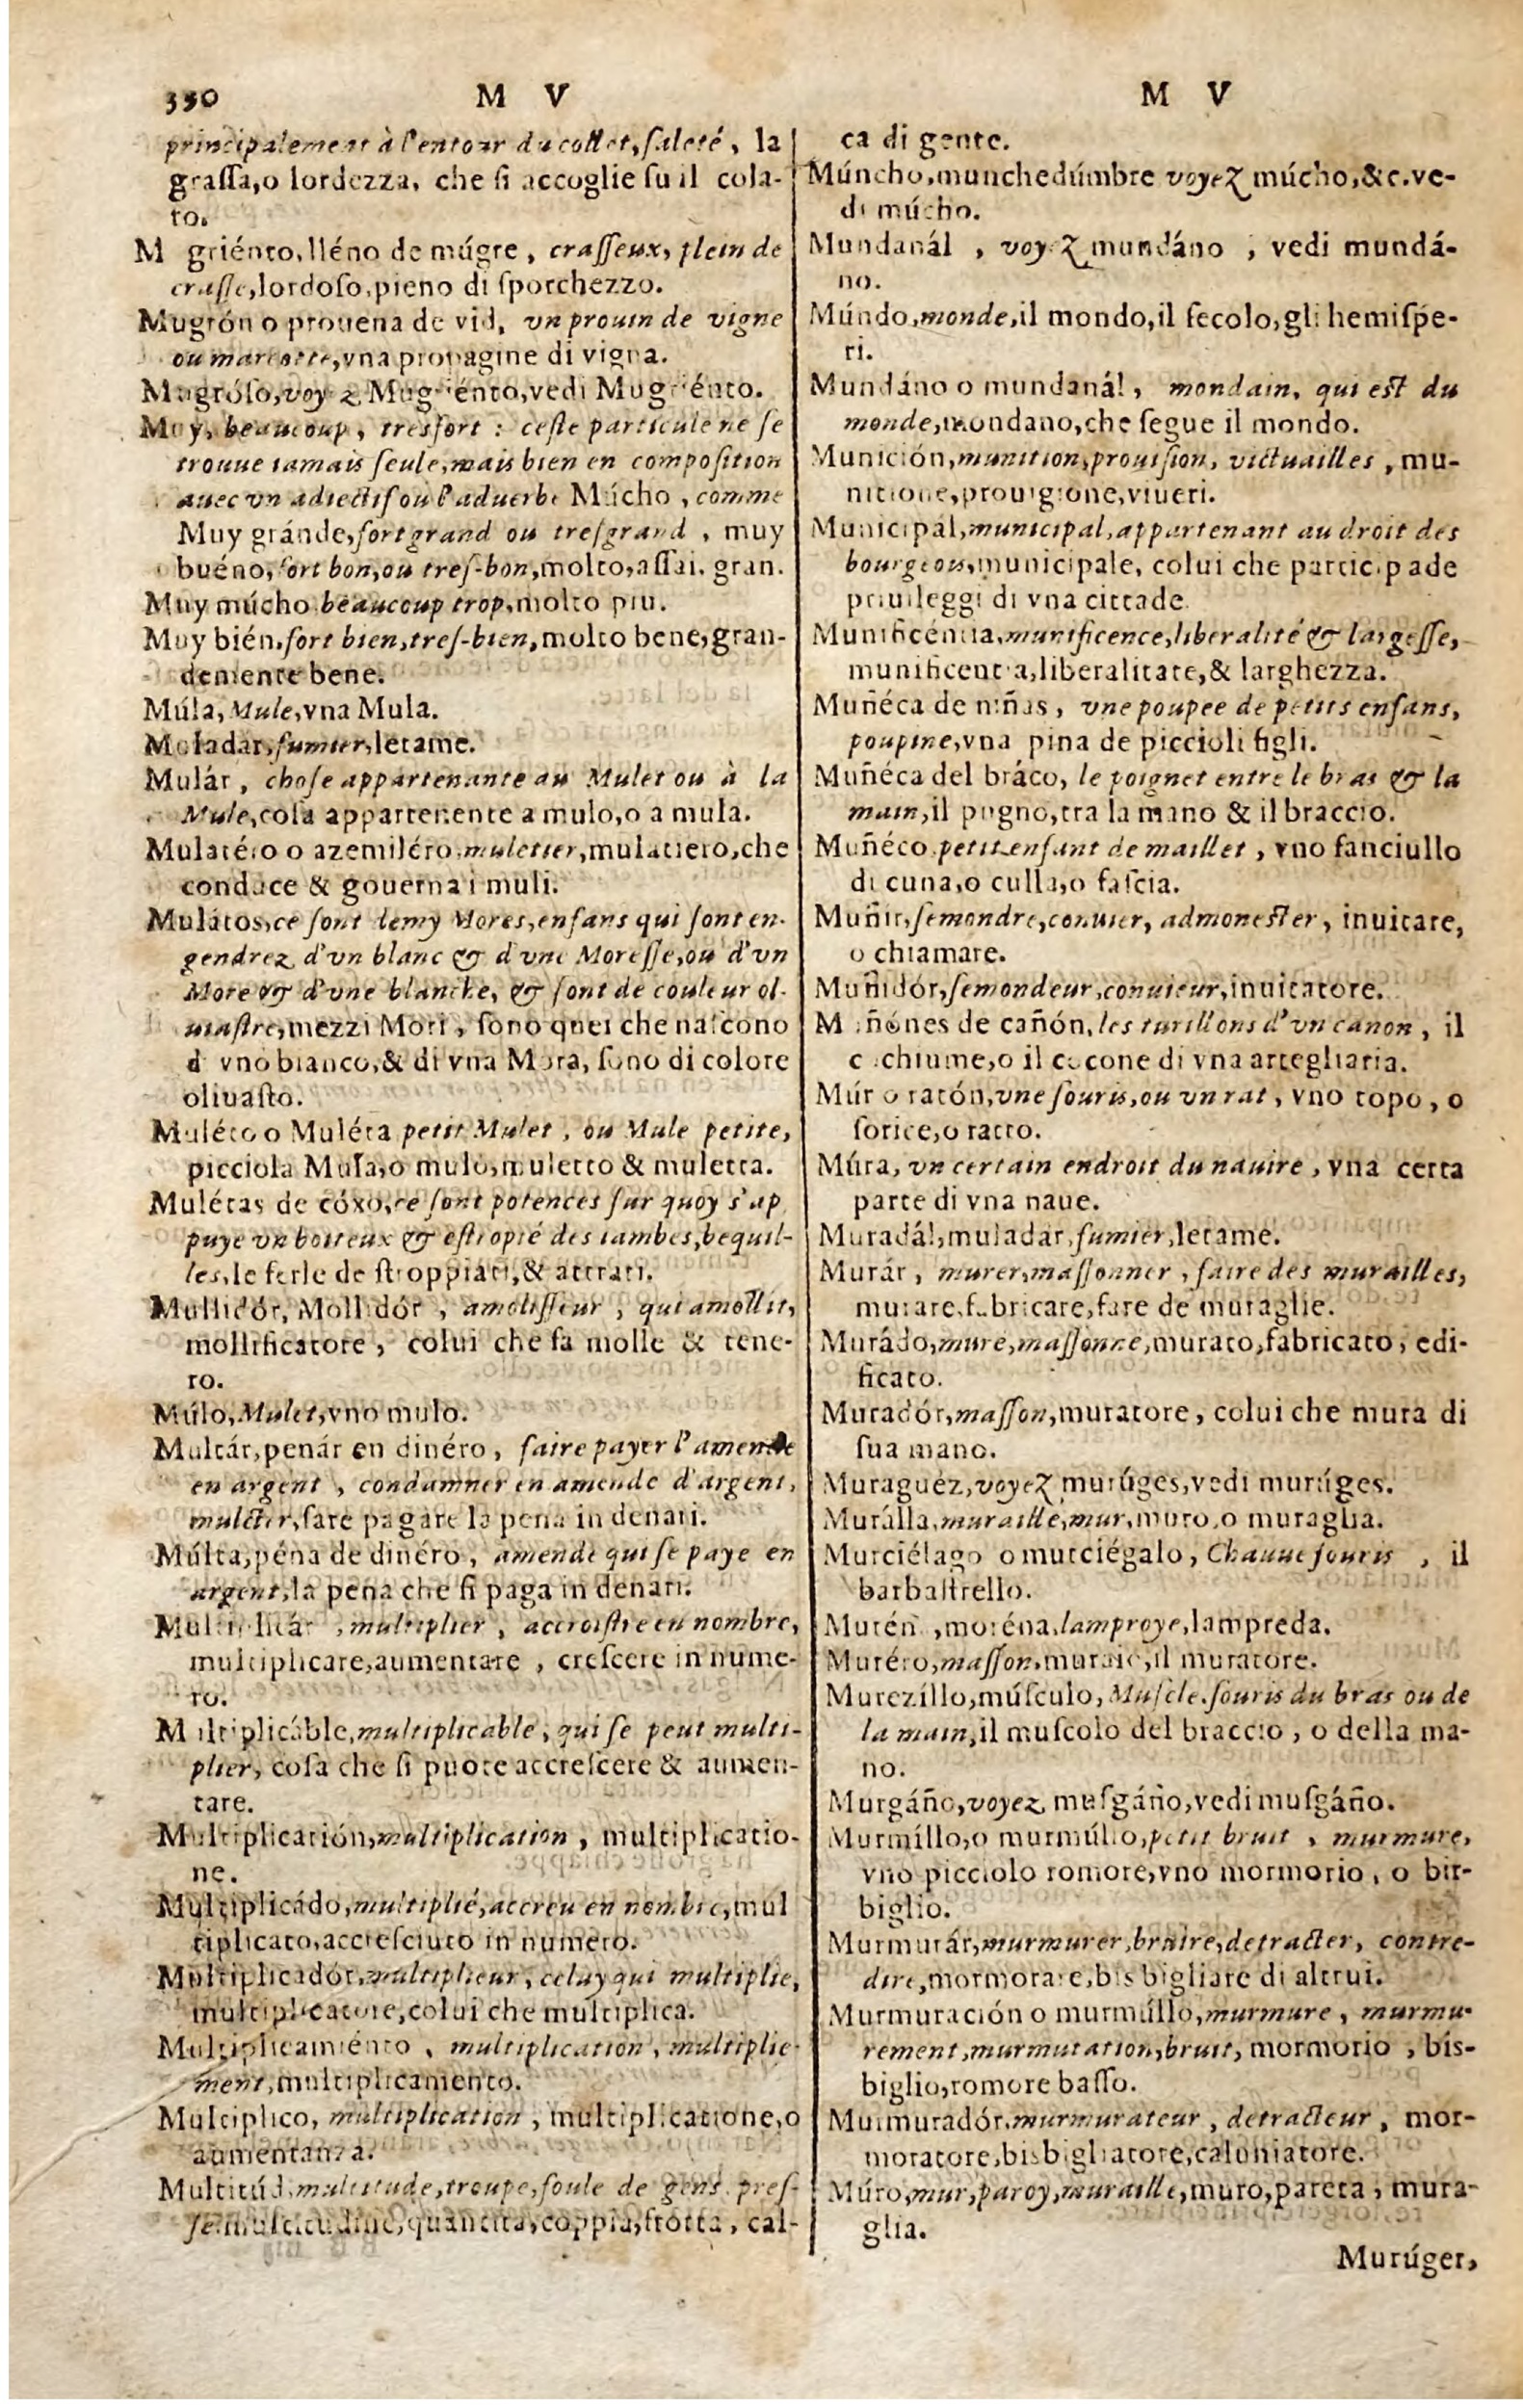 350 M V
principalement à l'entour du collet, saleté, la
grassa,o lordezza, che si accoglie su il cola-
to.
M griénto,lléno de múgre, crasseux, plein de
crasse,lordoso,pieno di sporchezzo.
Mugrón o prouena de vid, vn prouin de vigne
ou marcotte,vna propagine di vigna.
Mugróso,voyez Mugriénto,vedi Mugriénto.
Muy, beaucoup, tresfort : ceste particule ne se
trouue iamais seule,mais bien en composition
auec vn adiectif ou l'aduerbe Múcho, comme
Muy gránde,fort grand ou tresgrand, muy
buéno,fort bon,ou tres-bon,molto,assai, gran.
Muy múcho,beaucoup trop,molto piu.
Muy bién,fort bien,tres-bien,molto bene,gran-
demente bene.
Múla,Mule,vna Mula.
Moladar,fumier,letame.
Mulár, chose appartenante au Mulet ou à la
Mule,cosa appartenente a mulo,o a mula.
Mulatéro o azemiléro,muletier,mulatiero,che
conduce & gouerna i muli.
Mulátos,ce sont demy Mores,enfans qui sont en-
gendrez d'vn blanc & d'vne Moresse,ou d'vn
More & d'vne blanche, & sont de couleur ol-
uiastre,mezzi Mori, sono quei che nascono
d vno bianco,& di vna Mora, sono di colore
oliuasto.
Muléto o Muléta petit Mulet, ou Mule petite,
picciola Mula,o mulo,muletto & muletta.
Mulétas de cóxo,ce sont potences sur quoy s'ap
puye vn boiteux & estropié des iambes,bequil-
les,le ferle de stroppiati,& attrati.
Mullidór, Mollidór, amolisseur, qui amollit,
mollificatore, colui che fa molle & tene-
ro.
Múlo,Mulet,vno mulo.
Multár,penár en dinéro, faire payer l'amende
en argent, condamner en amende d'argent,
mulcter,fare pagare la pena in denari.
Múlta,péna de dinéro, amende qui se paye en
argent,la pena che si paga in denari.
Multiplicár, multiplier, accroistre en nombre,
multiplicare,aumentare, crescere in nume-
ro.
Multiplicáble,multiplicable, qui se peut multi-
plier, cosa che si puote accrescere & aumen-
tare.
Multiplicatión,multiplication, multiplicatio-
ne.
Multiplicádo,multiplié,accreu en nombre,mul
tiplicato,accresciuto in numero.
Multiplicadór,multiplieur, celuy qui multiplie,
multiplicatore,colui che multiplica.
Multiplicamiénto, multiplication, multiplie-
ment,multiplicamento.
Multiplico, multiplication, multiplicatione,o
aumentanza.
Multitúd,multitude,troupe,foule de gens pres-
se,multitudine,quantita,coppia,frotta, cal-
M V
ca di gente.
Múncho,munchedúmbre voyez múcho,&c.ve-
di múcho.
Mundanál, voyez mundáno, vedi mundá-
no.
Múndo,monde,il mondo,il secolo,gli hemispe-
ri.
Mundáno o mundanál, mondain, qui est du
monde,mondano,che segue il mondo.
Munición,munition,prouision, victuailles, mu-
nitione,prouigione,viueri.
Municipál,municipal,appartenant au droit des
bourgeois,municipale, colui che participa de
priuileggi di vna cittade.
Munificéntia,munificence,liberalité & largesse,
munificentia,liberalitate,& larghezza.
Muñéca de niñas, vne poupee de petits enfans,
poupine,vna pina de piccioli figli.
Muñéca del bráco, le poignet entre le bras & la
main,il pugno,tra la mano & il braccio.
Muñéco petit enfant de maillet, vno fanciullo
di cuna,o culla,o fascia.
Muñir,semondre,conuier, admonester, inuitare,
o chiamare.
Muñidór,semondeur,conuieur,inuitatore.
M ñónes de cañón,les turillons d'vn canon, il
cochiume,o il cocone di vna artegliaria.
Múr o ratón,vne souris,ou vn rat, vno topo, o
sorice,o ratto.
Múra, vn certain endroit du nauire, vna certa
parte di vna naue.
Muradál,muladar,fumier,letame.
Murár, murer,massonner, faire des murailles,
murare,fabricare,fare de muraglie.
Murádo,mure,massonne,murato,fabricato, edi-
ficato.
Muradór,masson,muratore, colui che mura di
sua mano.
Muraguéz,voyez murúges,vedi murúges.
Murálla,muraille,mur,muro,o muraglia.
Murciélago o murciégalo, Chauue souris, il
barbastrello.
Murén ,moréna,lamproye,lampreda.
Muréro,masson,muraio,il muratore.
Murezíllo,músculo, Muscle,souris du bras ou de
la main,il muscolo del braccio, o della ma-
no.
Murgáño,voyez musgáño,vedi musgáño.
Murmíllo,o murmúllo,petit bruit, murmure,
vno picciolo romore,vno mormorio, o bir-
biglio.
Murmurár,murmurer,bruire,detracter, contre-
dire,mormorare,bisbigliare di altrui.
Murmuración o murmúllo,murmure, murmu-
rement,murmutation,bruit, mormorio, bis-
biglio,romore basso.
Murmuradór,murmurateur, detracteur, mor-
moratore,bisbigliatore,caluniatore.
Múro,mur,paroy,muraille,muro,pareta, mura-
glia.
Murúger,